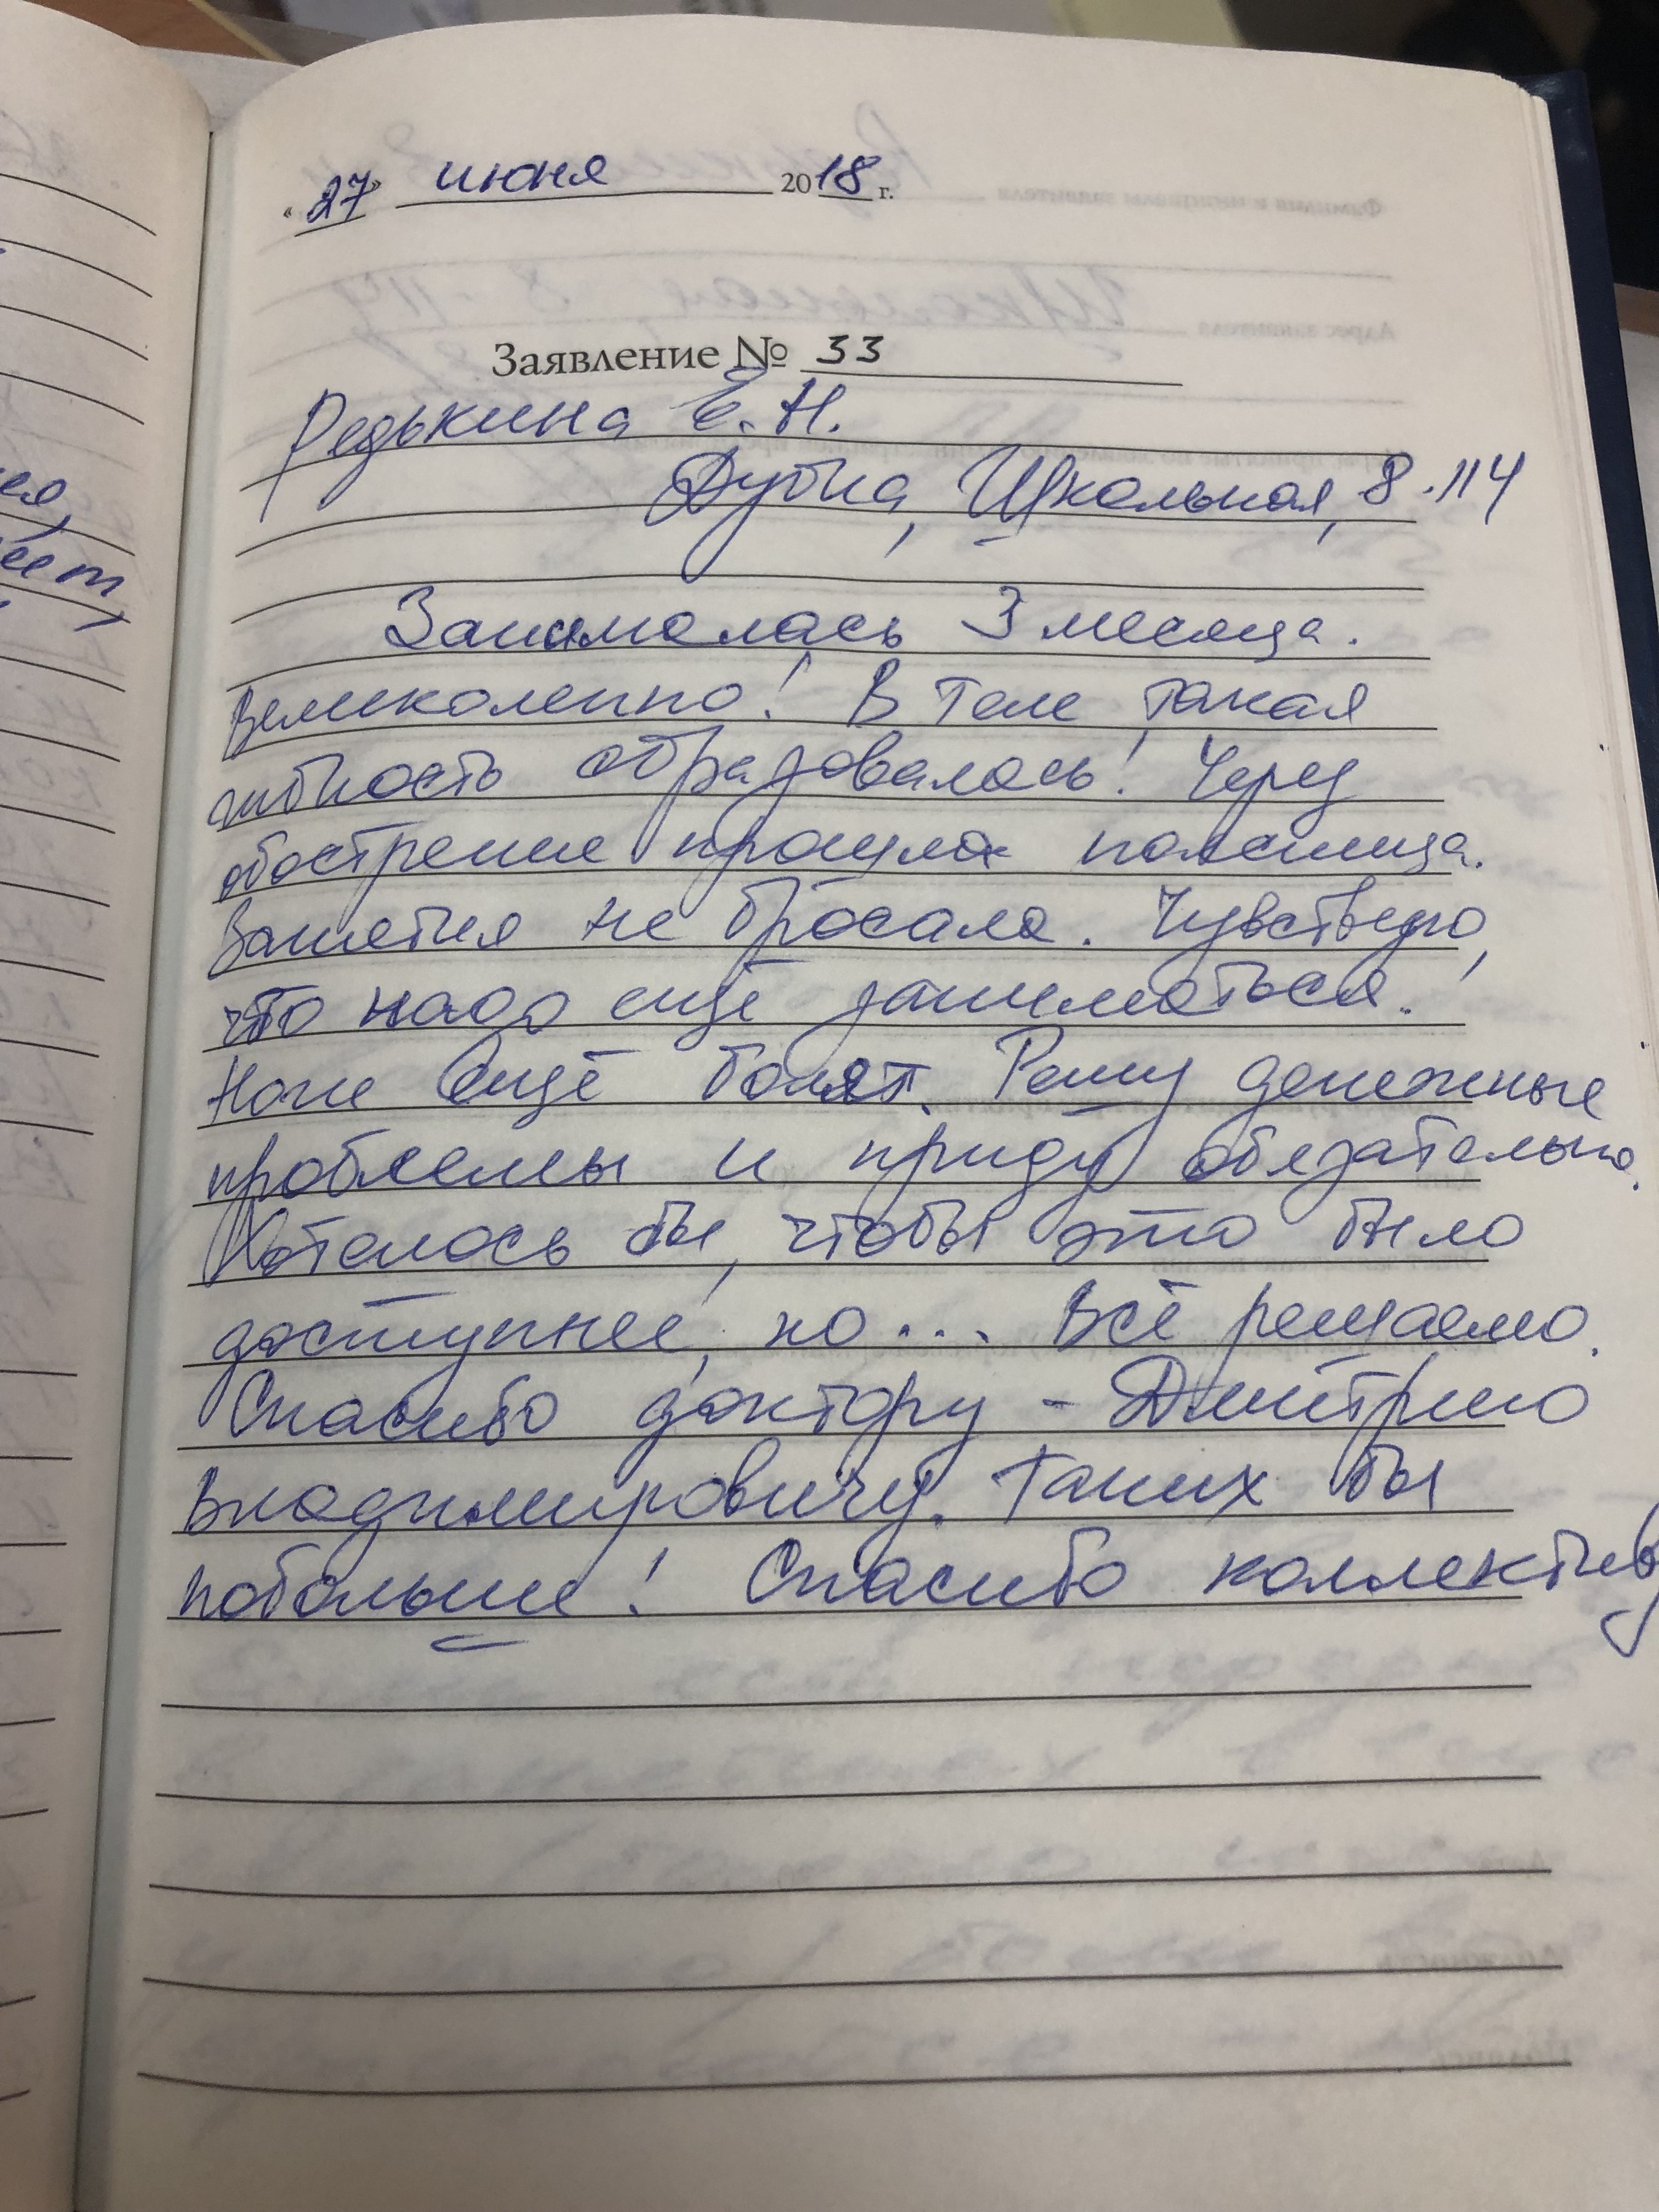 «27» июня 2018 г.
Заявление № 33
Редькина Е.Н.
Дубна, Школьная, 8-114
Занималась 3 месяца.
Великолепно! В теле такая
гибкость образовалась! Через
обострение прошла поясница.
Занятия не бросала. Чувствую,
что надо ещё заниматься.
Ноги ещё болят. Решу денежные
проблемы и приду обязательно.
Хотелось бы, чтобы это было
доступнее, но... Всё решаемо.
Спасибо доктору - Дмитрию
Владимировичу. Таких бы
побольше! Спасибо коллективу